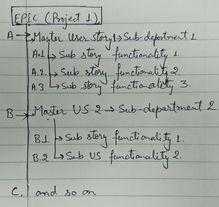 EPIC (Project 1)
A → Master User story 1 → Sub-department 1
A.1 → Sub story functionality 1
A.2 → Sub story functionality 2.
A.3 → Sub story functionality 3.
B → Master US 2 → Sub-department 2
B.1 → Sub story functionality 1.
B.2 → Sub US functionality 2.
C. and so on